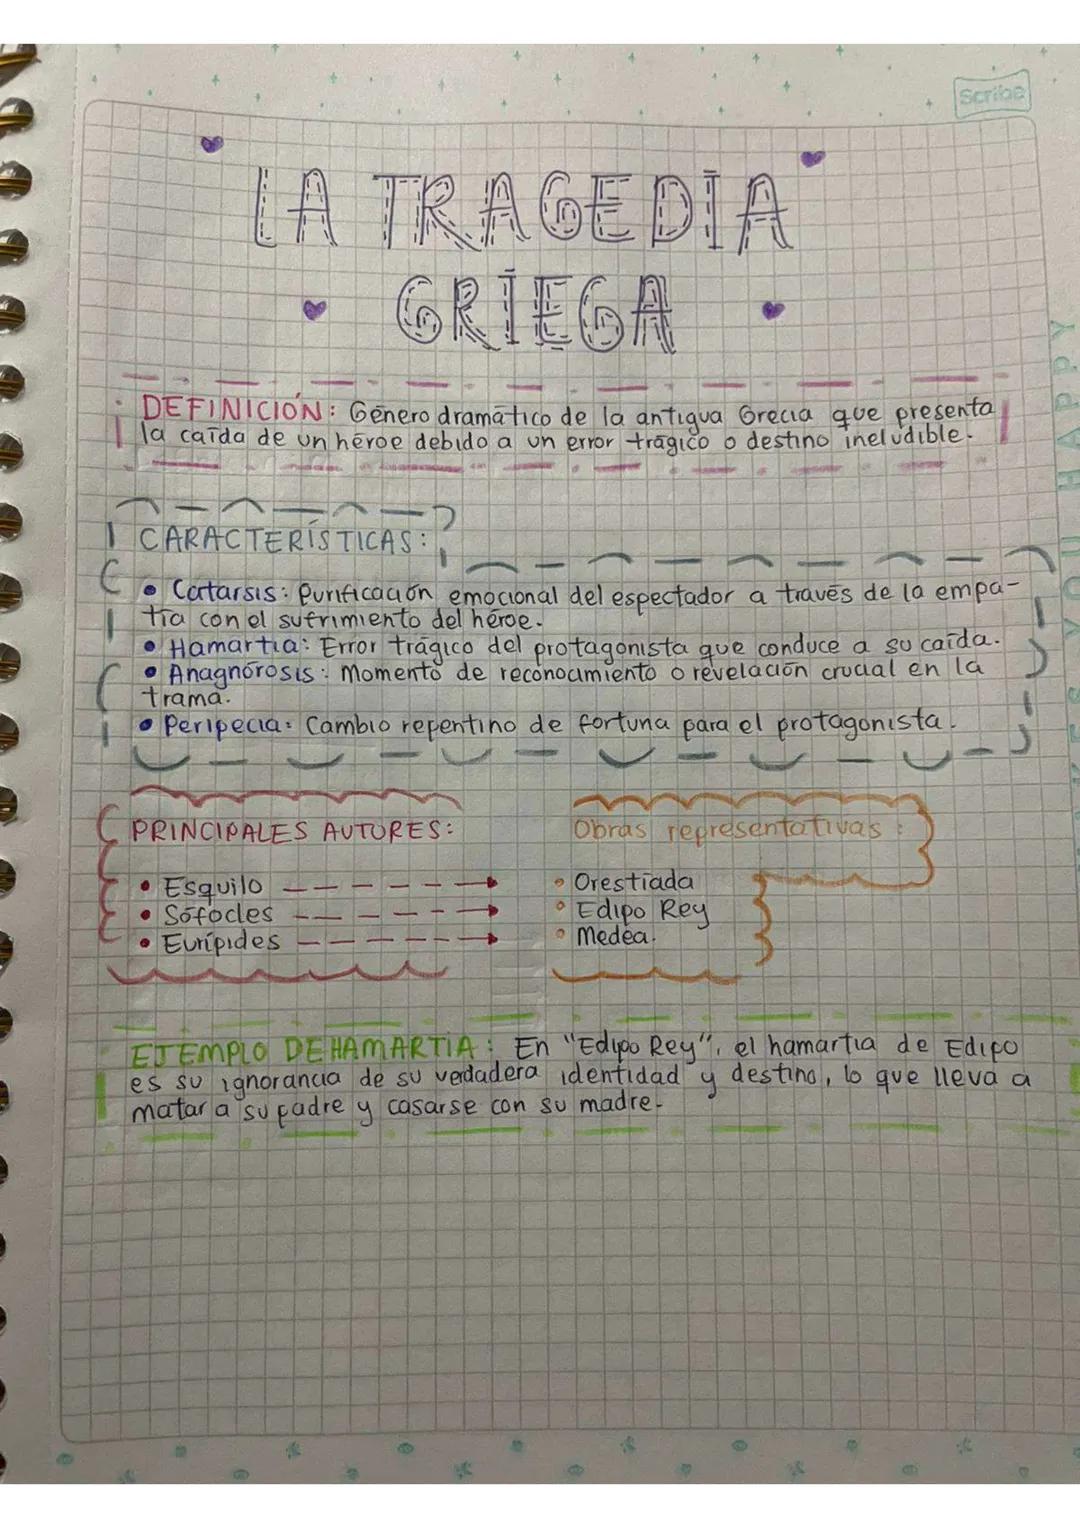 Scribe
LA TRAGEDIA
GRIEGA
DEFINICIÓN: Género dramático de la antigua Grecia que presenta
la caída de un héroe debido a un error trágico o destino ineludible.
CARACTERÍSTICAS:
• Catarsis: Purificación emocional del espectador a través de la empa-
tía con el sufrimiento del héroe.
• Hamartia: Error trágico del protagonista que conduce a su caída.
• Anagnórosis: Momento de reconocimiento o revelación crucial en la
trama.
• Peripecia: Cambio repentino de fortuna para el protagonista.
PRINCIPALES AUTORES:
• Esquilo
• Sófocles
• Eurípides
Obras representativas:
• Orestiada
• Edipo Rey
• Medea.
EJEMPLO DE HAMARTIA: En "Edipo Rey", el hamartia de Edipo
es su ignorancia de su verdadera identidad y destino, lo que lleva a
matar a su padre y casarse con su madre.
HAPPY
YOU